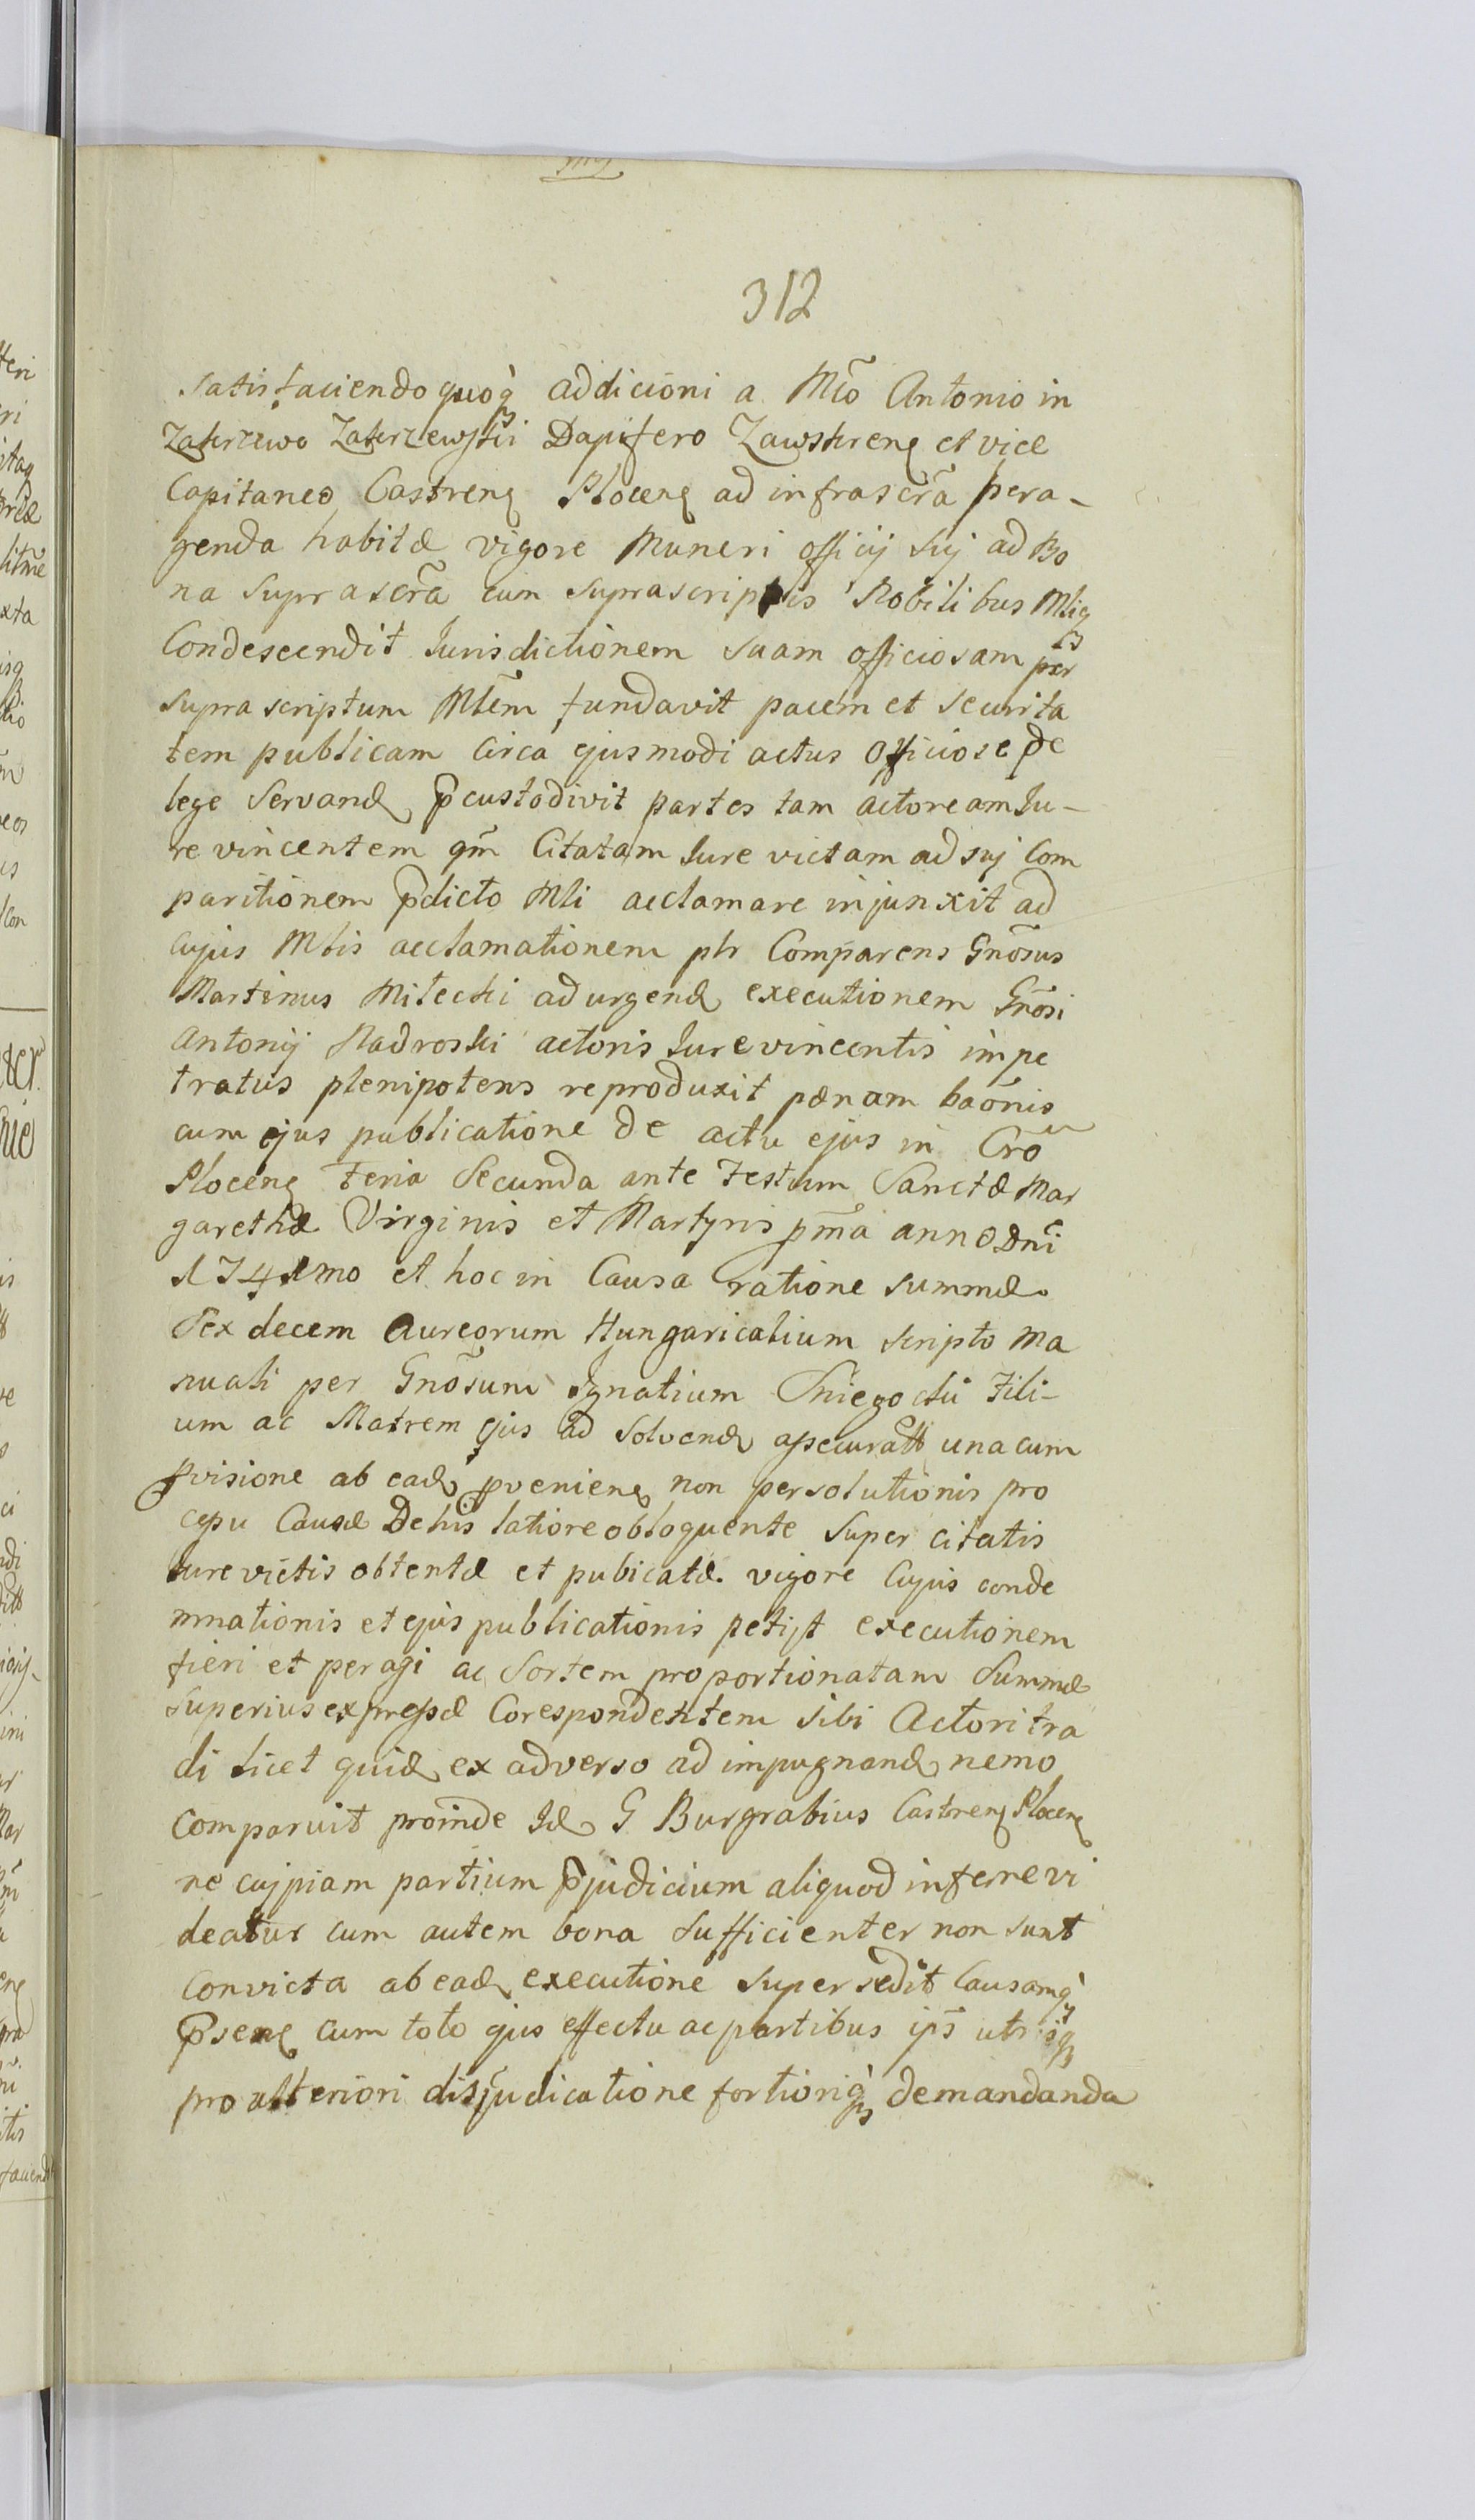 312
satisfaciendo quoq̀ addicioni a Mc̃o Antonio in
Zakrzewo Zakrzewski Dapifero Zawskren et vice
Capitaneo Castren Plocen ad infrascr̃a pera-
genda habitæ vigore Muneri officij sui ad Bo
na suprascr̃a cum suprascriptis Nobilibus Mliq
Condescendit Jurisdictionem suam officiosam per
supra scriptum Mlẽm fundavit pacem et securita
tem publicam Circa ejusmodi actus officiose de
lege servand p̃custodivit partes tam actoream Ju-
re vincentem qm̃ Citatam Jure victam ad sui Com
paritionem p̃dicto Mli acclamare injunxit ad
cujus Mlis acclamationem plr Comparens Gñosus
Martinus Milecki ad urgend executionem Gñosi
Antonij Nadroski actoris Jure vincentis impe
tratus plenipotens reproduxit pænam bãonis
cum ejus publicatione de actu ejus in Cr̃o
Plocen Feria Secunda ante Festum Sanctæ Mar
garethæ Virginis et Martyris pm̃a anno Dnĩ
1741mo et hoc in Causa ratione summæ
Sex decem Aureorum Hungaricalium scripto ma
nuali per Gñosum Ignatium Sniegocki Fili-
um ac Matrem ejus ad solvend assecuratt una cum
pvisione ab ead pvenien non persolutionis pro
cessu Causæ De his latiore obloquente super citatis
Jure victis obtentæ et pubicatæ vigore Cujus conde
mnationis et ejus publicationis petijt executionem
fieri et peragi ac Sortem proportionatam Summæ
superius expressæ Corespondentem sibi Actori tra
di licet quid ex adverso ad impugnand nemo
comparuit proinde Id G Burgrabius Castren Plocen
ne cujpiam partium p̃judicium aliquod inferre vi
deatur cum autem bona sufficienter non sunt
convicta ab ead executione supersedit Causamq̀
p̃sen cum toto ejus effectu ac partibus ips̃ utrisq
pro ulteriori disjudicatione fortioriq̀ demandanda